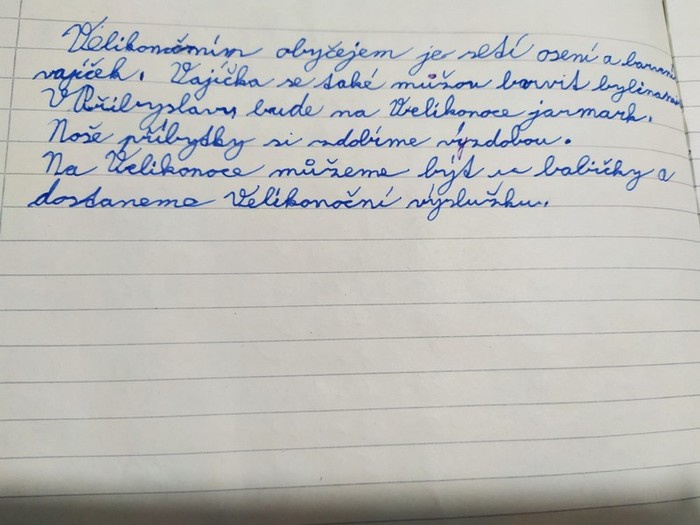 Velikonočním obyčejem je setí osení a barvení
vajíček. Vajíčka se také můžou barvit bylinami
V Přibyslavy bude na Velikonoce jarmark.
Noše příbytky si zdobíme výzdobou.
Na Velikonoce můžeme být u babičky a
dostaneme Velikonoční výslužku.